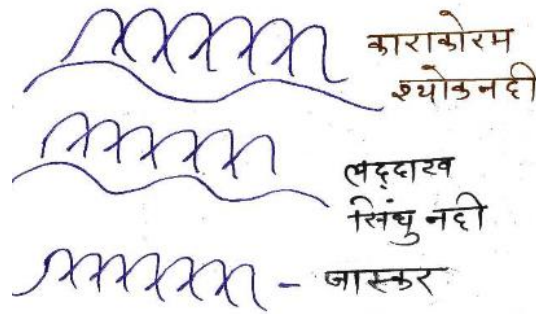 काराकोरम
श्योक नदी
लद्दाख
सिंधु नदी
- जास्कर